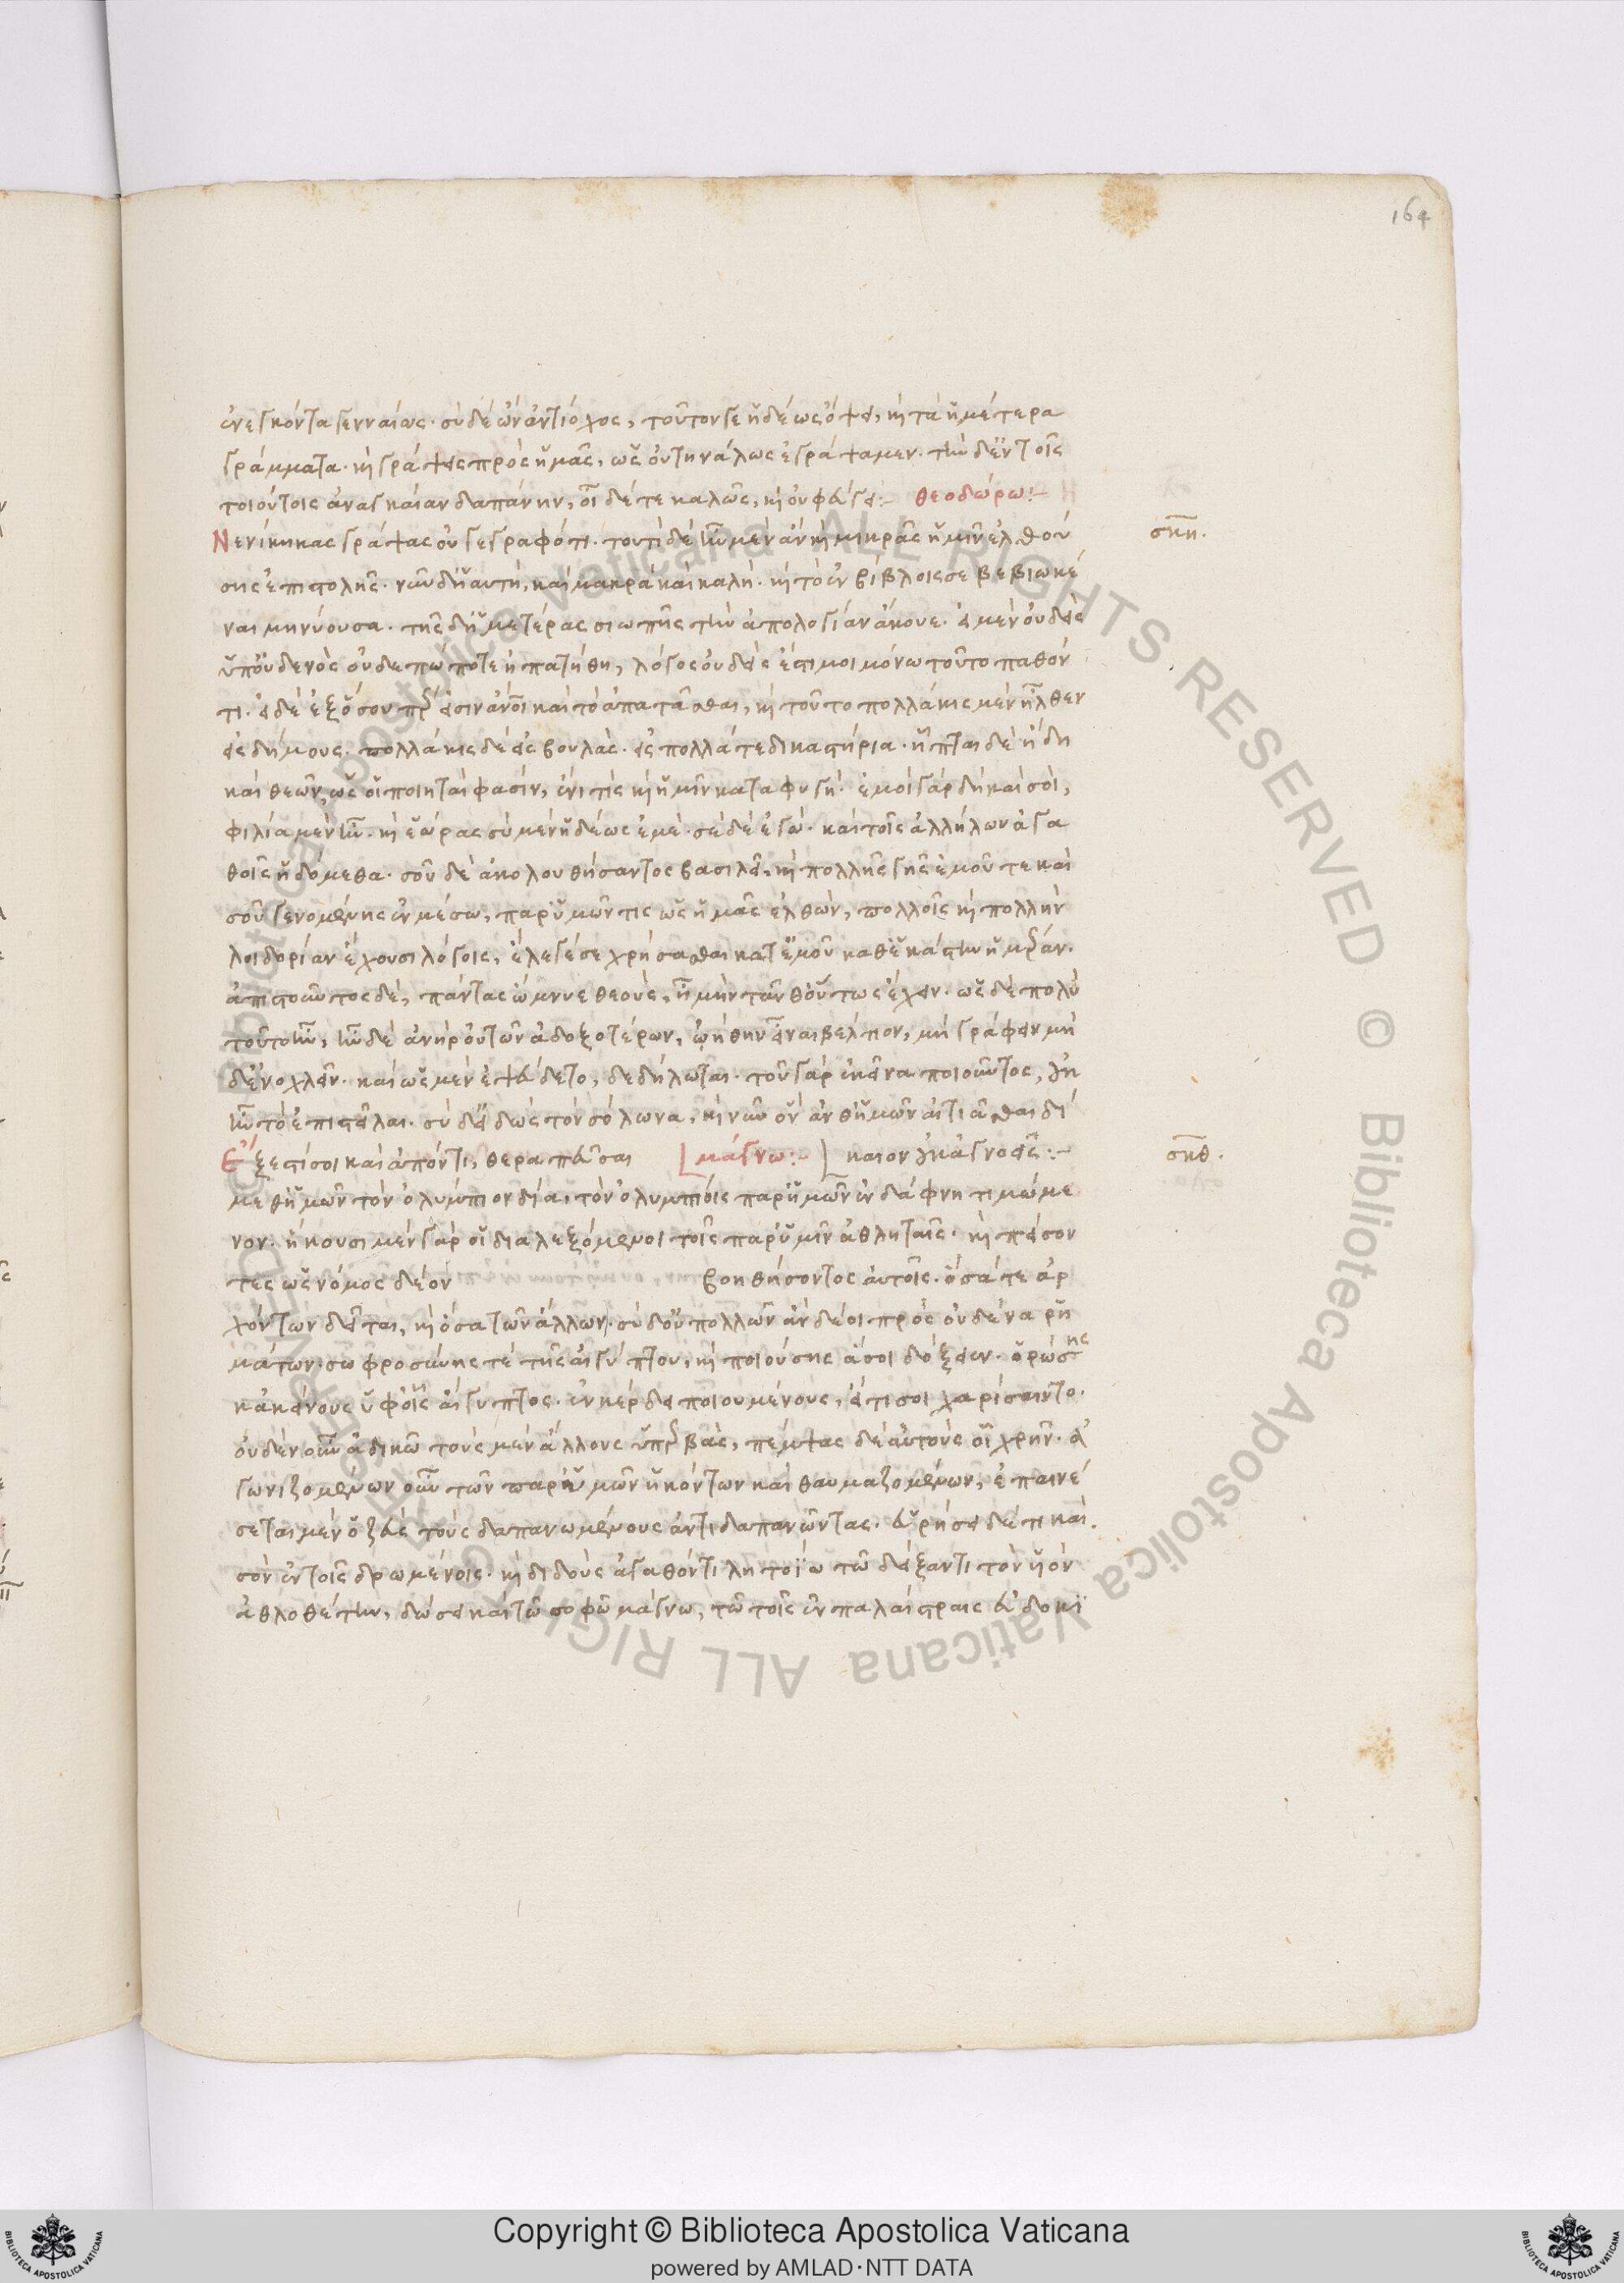 164
ἐνεγκόντα γενναίως. σὺ δὲ ὢν ἀντίοχος, τοῦτόν γε ἡδέως ὄψει, καὶ τὰ ἡμέτερα
γράμματα. καὶ γράψεις πρὸς ἡμᾶς, ὡς οὐκ ἄλλως ἐγράψαμεν. τὴν δ' ἐν τοῖς
τοιούτοις ἀναγκαίαν δαπάνην, οἴσει δέ τε καλῶς, καὶ οὐ φεύγει :– θεοδώρω :–
Νενίκηκας γράψας οὐ γεγραφότι. τουτὶ δὲ ἦν μὲν ἂν καὶ μικρᾶς ἡμῖν ἐλθού
σης ἐπιστολῆς. νῦν δ' ἡ αυτὴ, καὶ μακρὰ καὶ καλή. καὶ τὸ ἐν βίβλοις σε βεβιωκέ
ναι μηνύουσα. τῆς δ' ἡμετέρας σιωπῆς τὴν ἀπολογίαν ἄκουε. εἰ μὲν οὐδεὶς
ὑπ' οὐδενὸς οὐδεπώποτε ἠπατήθη, λόγος οὐδείς ἐστι μοι μόνω τοῦτο παθόν
τι. εἰ δὲ ἐξ ὅσου περ εἰσὶν ἄνοι καὶ τὸ ἀπατᾶσθαι, καὶ τοῦτο πολλάκις μὲν ἦλθεν
εἰς δήμους. πολλάκις δὲ εἰς βουλὰς. εἰς πολλά τε δικαστήρια. ἧπται δὲ ἤδη
καὶ θεῶν, ὡς οἱ ποιηταί φασιν, ἔνι τις καὶ ἡμῖν καταφυγή. ἐμοὶ γὰρ δὴ καὶ σοὶ,
φιλία μὲν ἦν. καὶ ἑώρας σὺ μὲν ἡδέως ἐμὲ. σὲ δὲ ἐγώ. καὶ τοῖς ἀλλήλων ἀγα
θοῖς ἡδόμεθα. σοῦ δὲ ἀκολουθήσαντος βασιλεῖ, καὶ πολλῆς γῆς ἐμοῦ τε καὶ
σοῦ γενομένης ἐν μέσω, παρ' ὑμῶν τις ὡς ἡμᾶς ἐλθὼν, πολλοῖς καὶ πολλὴν
λοιδορίαν ἔχουσι λόγοις, ἔλεγέ σε χρήσασθαι κατ' ἐμοῦ καθ' ἑκάστην ἡμέραν.
ἀπιστοῦντος δὲ, πάντας ὤμνυε θεοὺς, ἦ μὴν ταῦθ' οὕτως ἔχειν. ὡς δὲ πολὺ
τοῦτο ἦν, ἦν δὲ ἀνὴρ οὐ τῶν ἀδοξοτέρων, ᾠήθην εἶναι βέλτιον, μὴ γράφειν μὴ
δ' ἐνοχλεῖν. καὶ ὡς μὲν ἐψεύδετο, δεδήλωται. τοῦ γὰρ ἐκεῖνα ποιοῦντος, οὐκ
ἦν τὸ ἐπιστεῖλαι. σὺ δ' εἰδὼς τὸν σόλωνα, καὶ νῦν οὐκ ἂν θ' ἡμῶν αἰτιᾶσθαι δί
Ἔξεστί σοι καὶ ἀπόντι, θεραπεῦσαι μάγνω :– καιον οὐκ ἀγνοεῖς :–
μεθ' ἡμῶν τὸν ὀλύμπιον δία, τὸν ὀλυμπίοις παρ' ἡμῶν ἐν δάφνη τιμώμε
νον. ἥκουσι μὲν γὰρ οἱ διαλεξόμενοι τοῖς παρ' ὑμῖν ἀθληταῖς. καὶ πείσον
τες ὡς νόμος δέον βοηθήσοντος αὐτοῖς. ὅσά τε ἀρ
χόντων δεῖται, καὶ ὅσα τῶν ἄλλων. σὺ δ' οὐ πολλῶν ἂν δέοι πρὸς οὐδένα ῥη
μάτων. σωφροσύνης τέ τῆς αἰγύπτου, καὶ ποιούσης ἅ σοι δόξειεν. ὁρώσης
κἀκείνους ὑφ' οἷς αἴγυπτος. ἐν κέρδει ποιουμένους, εἴ τι σοι χαρίσαιντο.
οὐδὲν οὖν ἀδικῶ τοὺς μὲν ἄλλους ὑπερβὰς, πέμψας δὲ αὐτοὺς οἷ χρῆν. ἀ
γωνιζομένων οὖν τῶν παρ' ὑμῶν ἡκόντων καὶ θαυμαζομένων, ἐπαινέ
σεται μὲν ὁ ζεὺς τοὺς δαπανωμένους ἀντὶ δαπανῶντας. εὑρήσει δέ τι καὶ
σὸν ἐν τοῖς δρωμένοις. καὶ διδοὺς ἀγαθὸν τι λητοΐω τῶ δείξαντι τὸν υἱὸν
ἀθλοθέτην, δώσει καὶ τῶ σοφῶ μάγνω, τῶ τοῖς ἐν παλαίστραις εὐδοκι
σκη.
σκθ.
Biblioteca Apostolica Vaticana ALL RIGHTS RESERVED ©
Copyright © Biblioteca Apostolica Vaticana
powered by AMLAD・NTT DATA
BIBLIOTECA APOSTOLICA VATICANA
BIBLIOTECA APOSTOLICA VATICANA